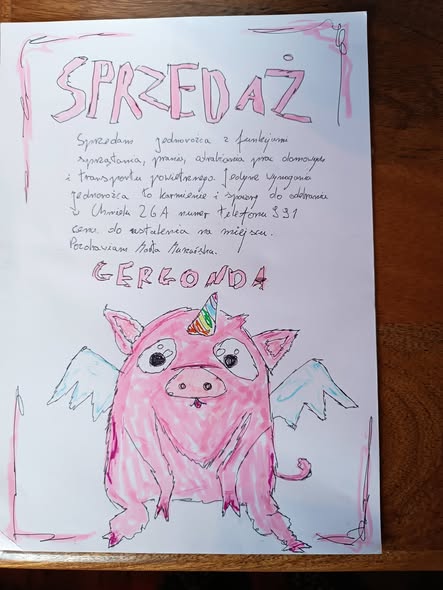 SPRZEDAŻ
Sprzedam jednorożca z funkcjami
sprzątania, prania, odrabiania prac domowych
i transportu powietrznego. Jedyne wymagania
jednorożca to karmienie i spacery do odebrania
w Chmielu 26A numer telefonu 331
cena do ustalenia na miejscu.
Pozdrawiam Marta
GERGONDA